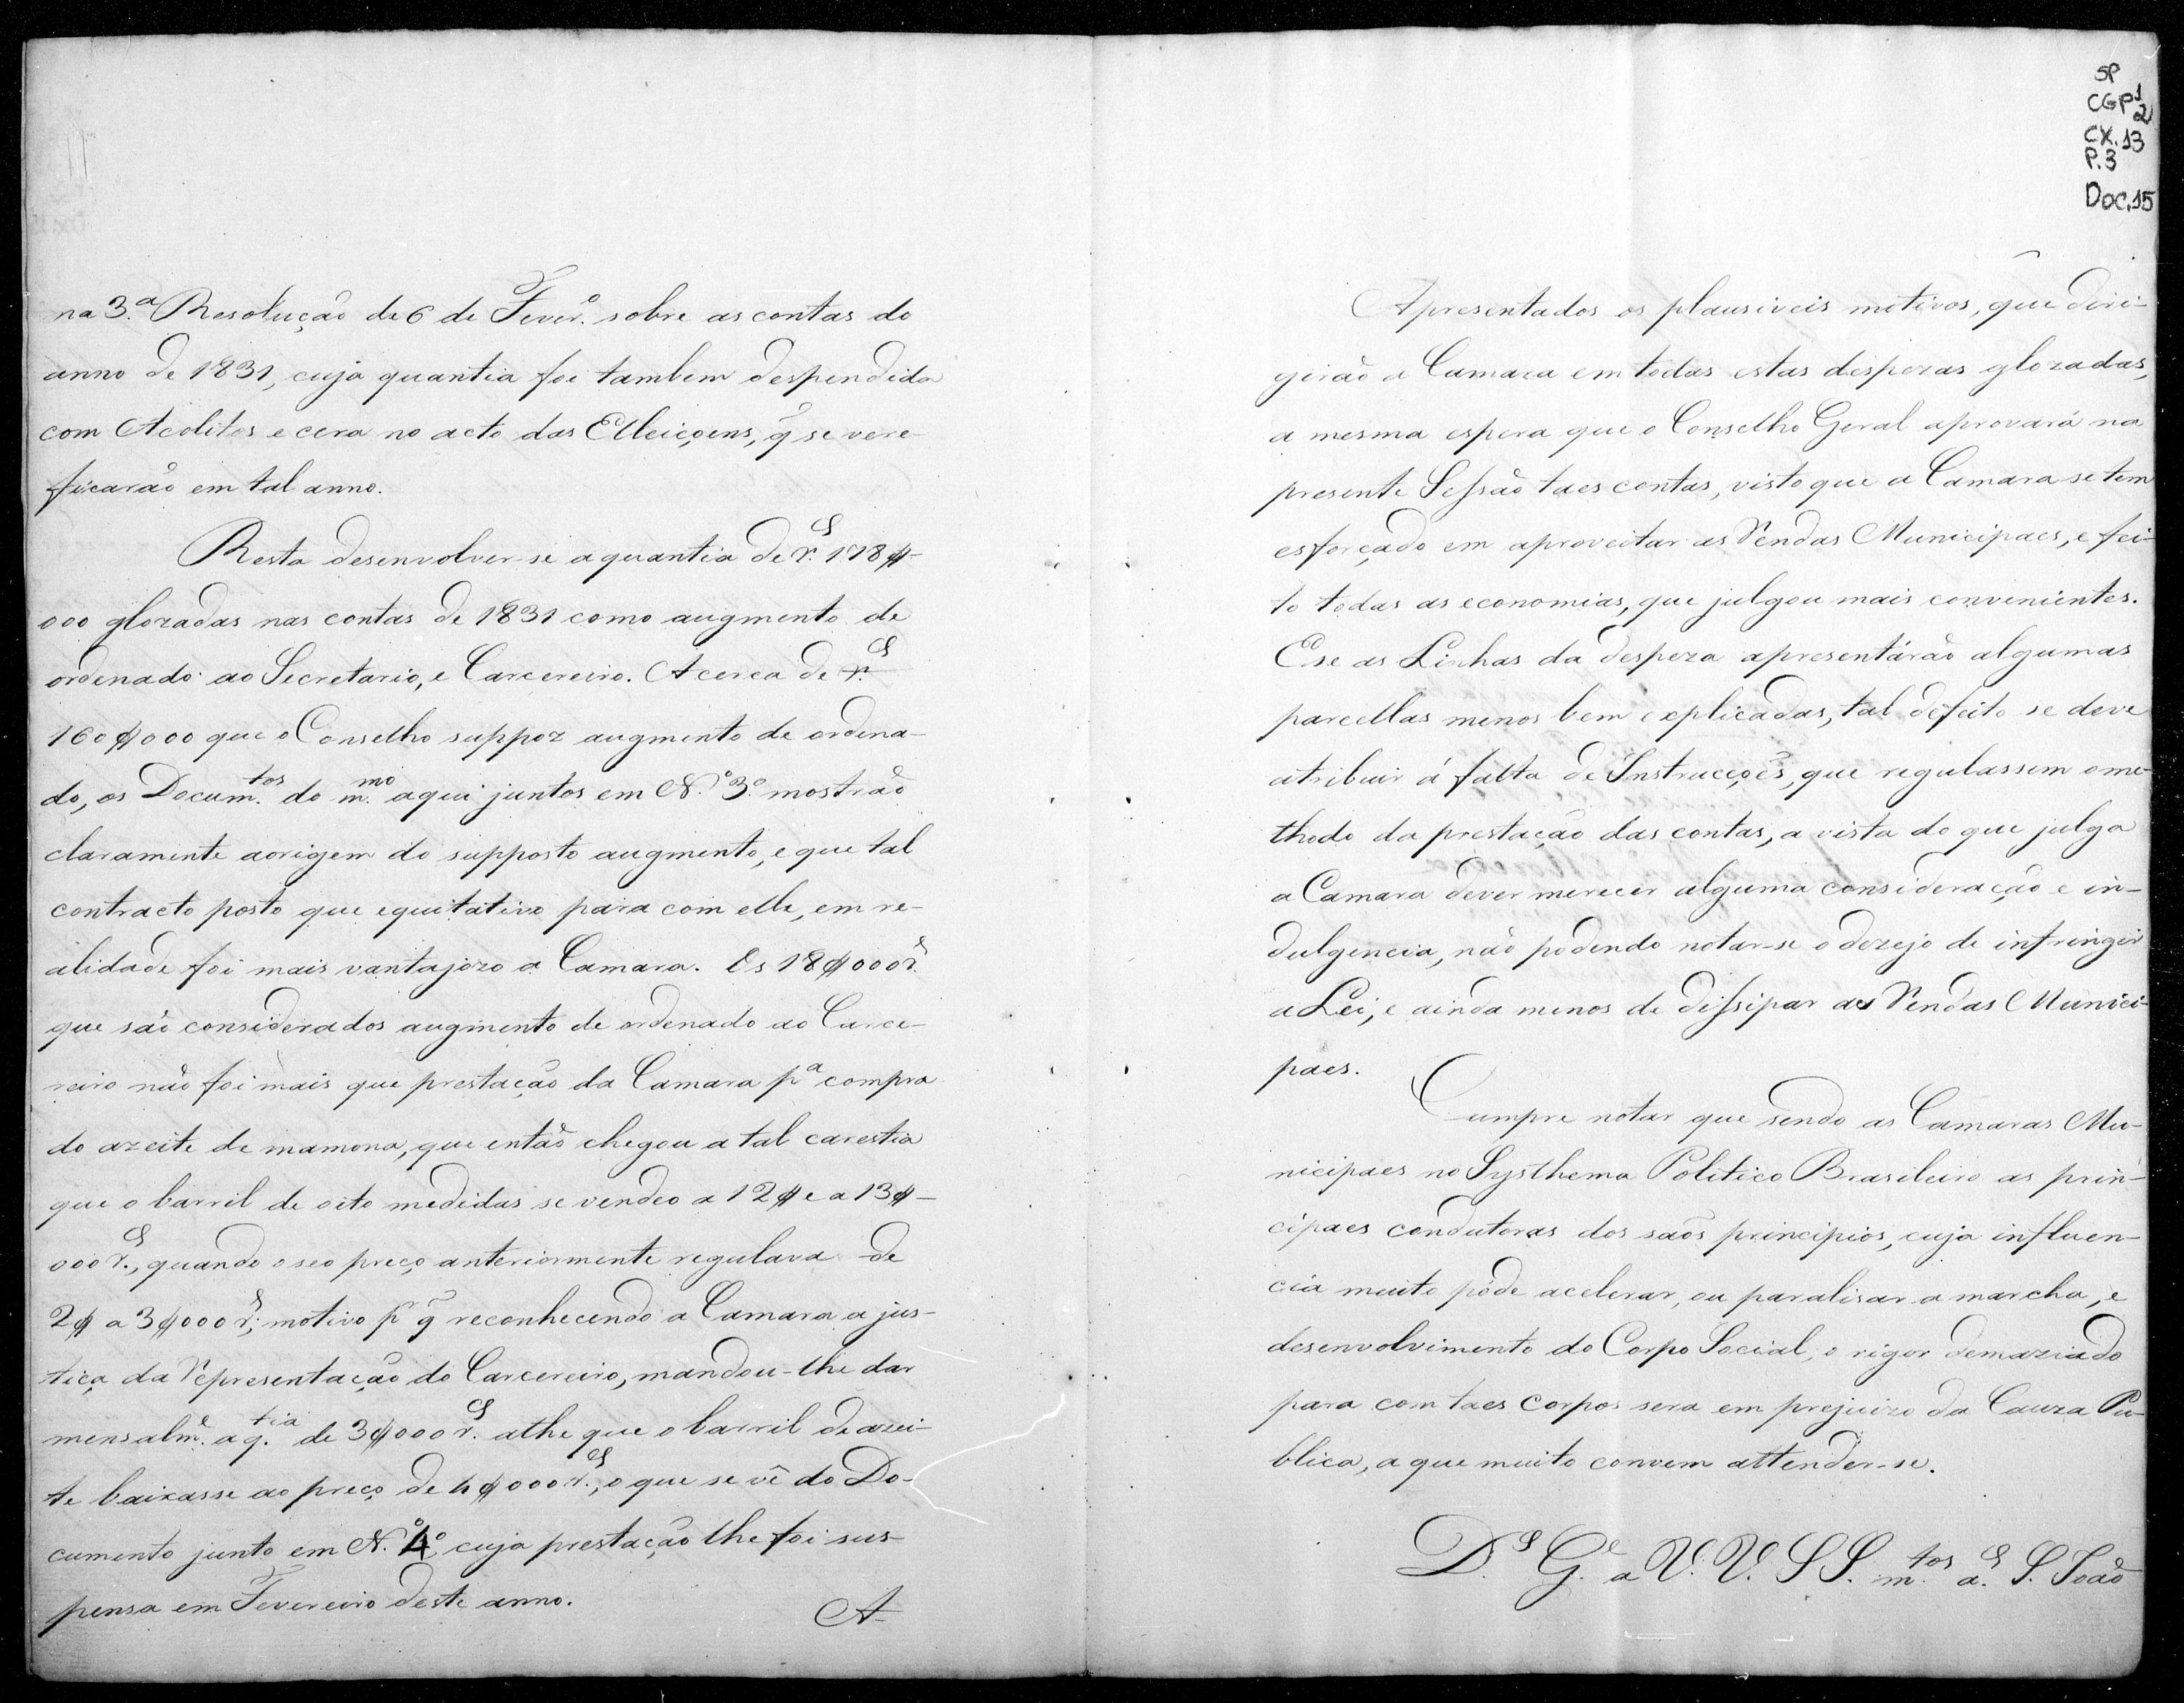 na 3.ª Resolução de 6 de Fever.º sobre as contas do
anno de 1831, cuja quantia foi tambem despendida
com Acolitos e cera no acto das Elleiçoens, q̃ se vere-
ficarão em tal anno.
Resta desenvolver-se a quantia de r.s 178$-
000 glozadas nas contas de 1831 como augmento de
ordenado ao Secretario, e Carcereiro. Acerca de r.s
160$000 que o Conselho suppoz augmento de ordena-
do, os Docum.tos do m.mo aqui juntos em N.º 3.º mostrão
claramente a origem do supposto augmento, e que tal
contracto posto que equitativo para com elle, em re-
alidade foi mais vantajozo a Camara. Os 18$000 r.s
que são considerados augmento de ordenado ao Carce-
reiro não foi mais que prestação da Camara p.ª compra
do azeite de mamona, que então chegou a tal carestia
que o barril de oito medidas se vendeo a 12$ e a 13$-
000 r.s, quando o seo preço anteriormente regulava de
2$ a 3$000 r.s; motivo p.r q̃ reconhecendo a Camara a jus-
tiça da Representação do Carcereiro, mandou-lhe dar
mensalm.e a q.tia de 3$000 r.s athe que o barril de azei-
te baixasse ao preço de 4$000 r.s, o que se vê do Do-
cumento junto em N.º 4.º cuja prestação lhe foi sus-
pensa em Fevereiro deste anno.
A-
SP
CGP1
2
CX.13
P.3
DOC.15
Apresentados os plausiveis motivos, que diri-
girão a Camara em todas estas despezas glozadas,
a mesma espera que o Conselho Geral aprovará na
presente Sessão taes contas, visto que a Camara se tem
esforçado em aproveitar as Rendas Municipaes, e fei-
to todas as economias, que julgou mais convenientes.
E se as Linhas da despeza apresentárão algumas
parcellas menos bem explicadas, tal defeito se deve
atribuir á falta de Instrucções, que regulassem o me-
thodo da prestação das contas, a vista do que julga
a Camara dever merecer alguma consideração e in-
dulgencia, não podendo notar-se o dezejo de infringir
a Lei, e ainda menos de dissipar as Rendas Munici-
paes.
Cumpre notar que sendo as Camaras Mu-
nicipaes no Systhema Politico Brasileiro as prin-
cipaes condutoras dos saõs principios, cuja influen-
cia muito póde acelerar, ou paralisar a marcha, e
desenvolvimento do Corpo Social, o rigor demaziado
para com taes corpos sera em prejuizo da Cauza Pu-
blica, a que muito convem attender-se.
D.s G.e a V. V. S S. m.tos a.s S. João